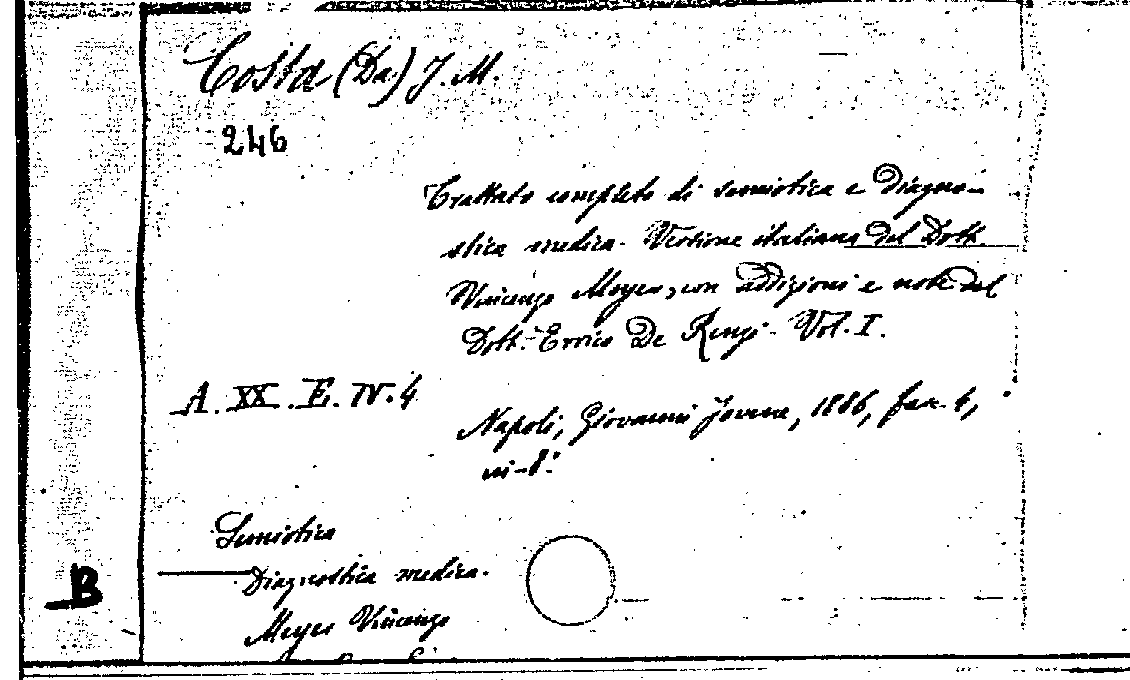 Costa (Da) J. M.
246
Trattato completo di semiotica e diagno-
stica medica. Versione italiana del Dott.
Vincenzo Meyer, con addizioni e note del
Dott. Errico De Renzi - Vol. I.
A. XX. E. IV. 4
Napoli, Giovanni Jovene, 1886, fasc. 4,
in-8.°
Semiotica
Diagnostica medica.
B
Meyer Vincenzo